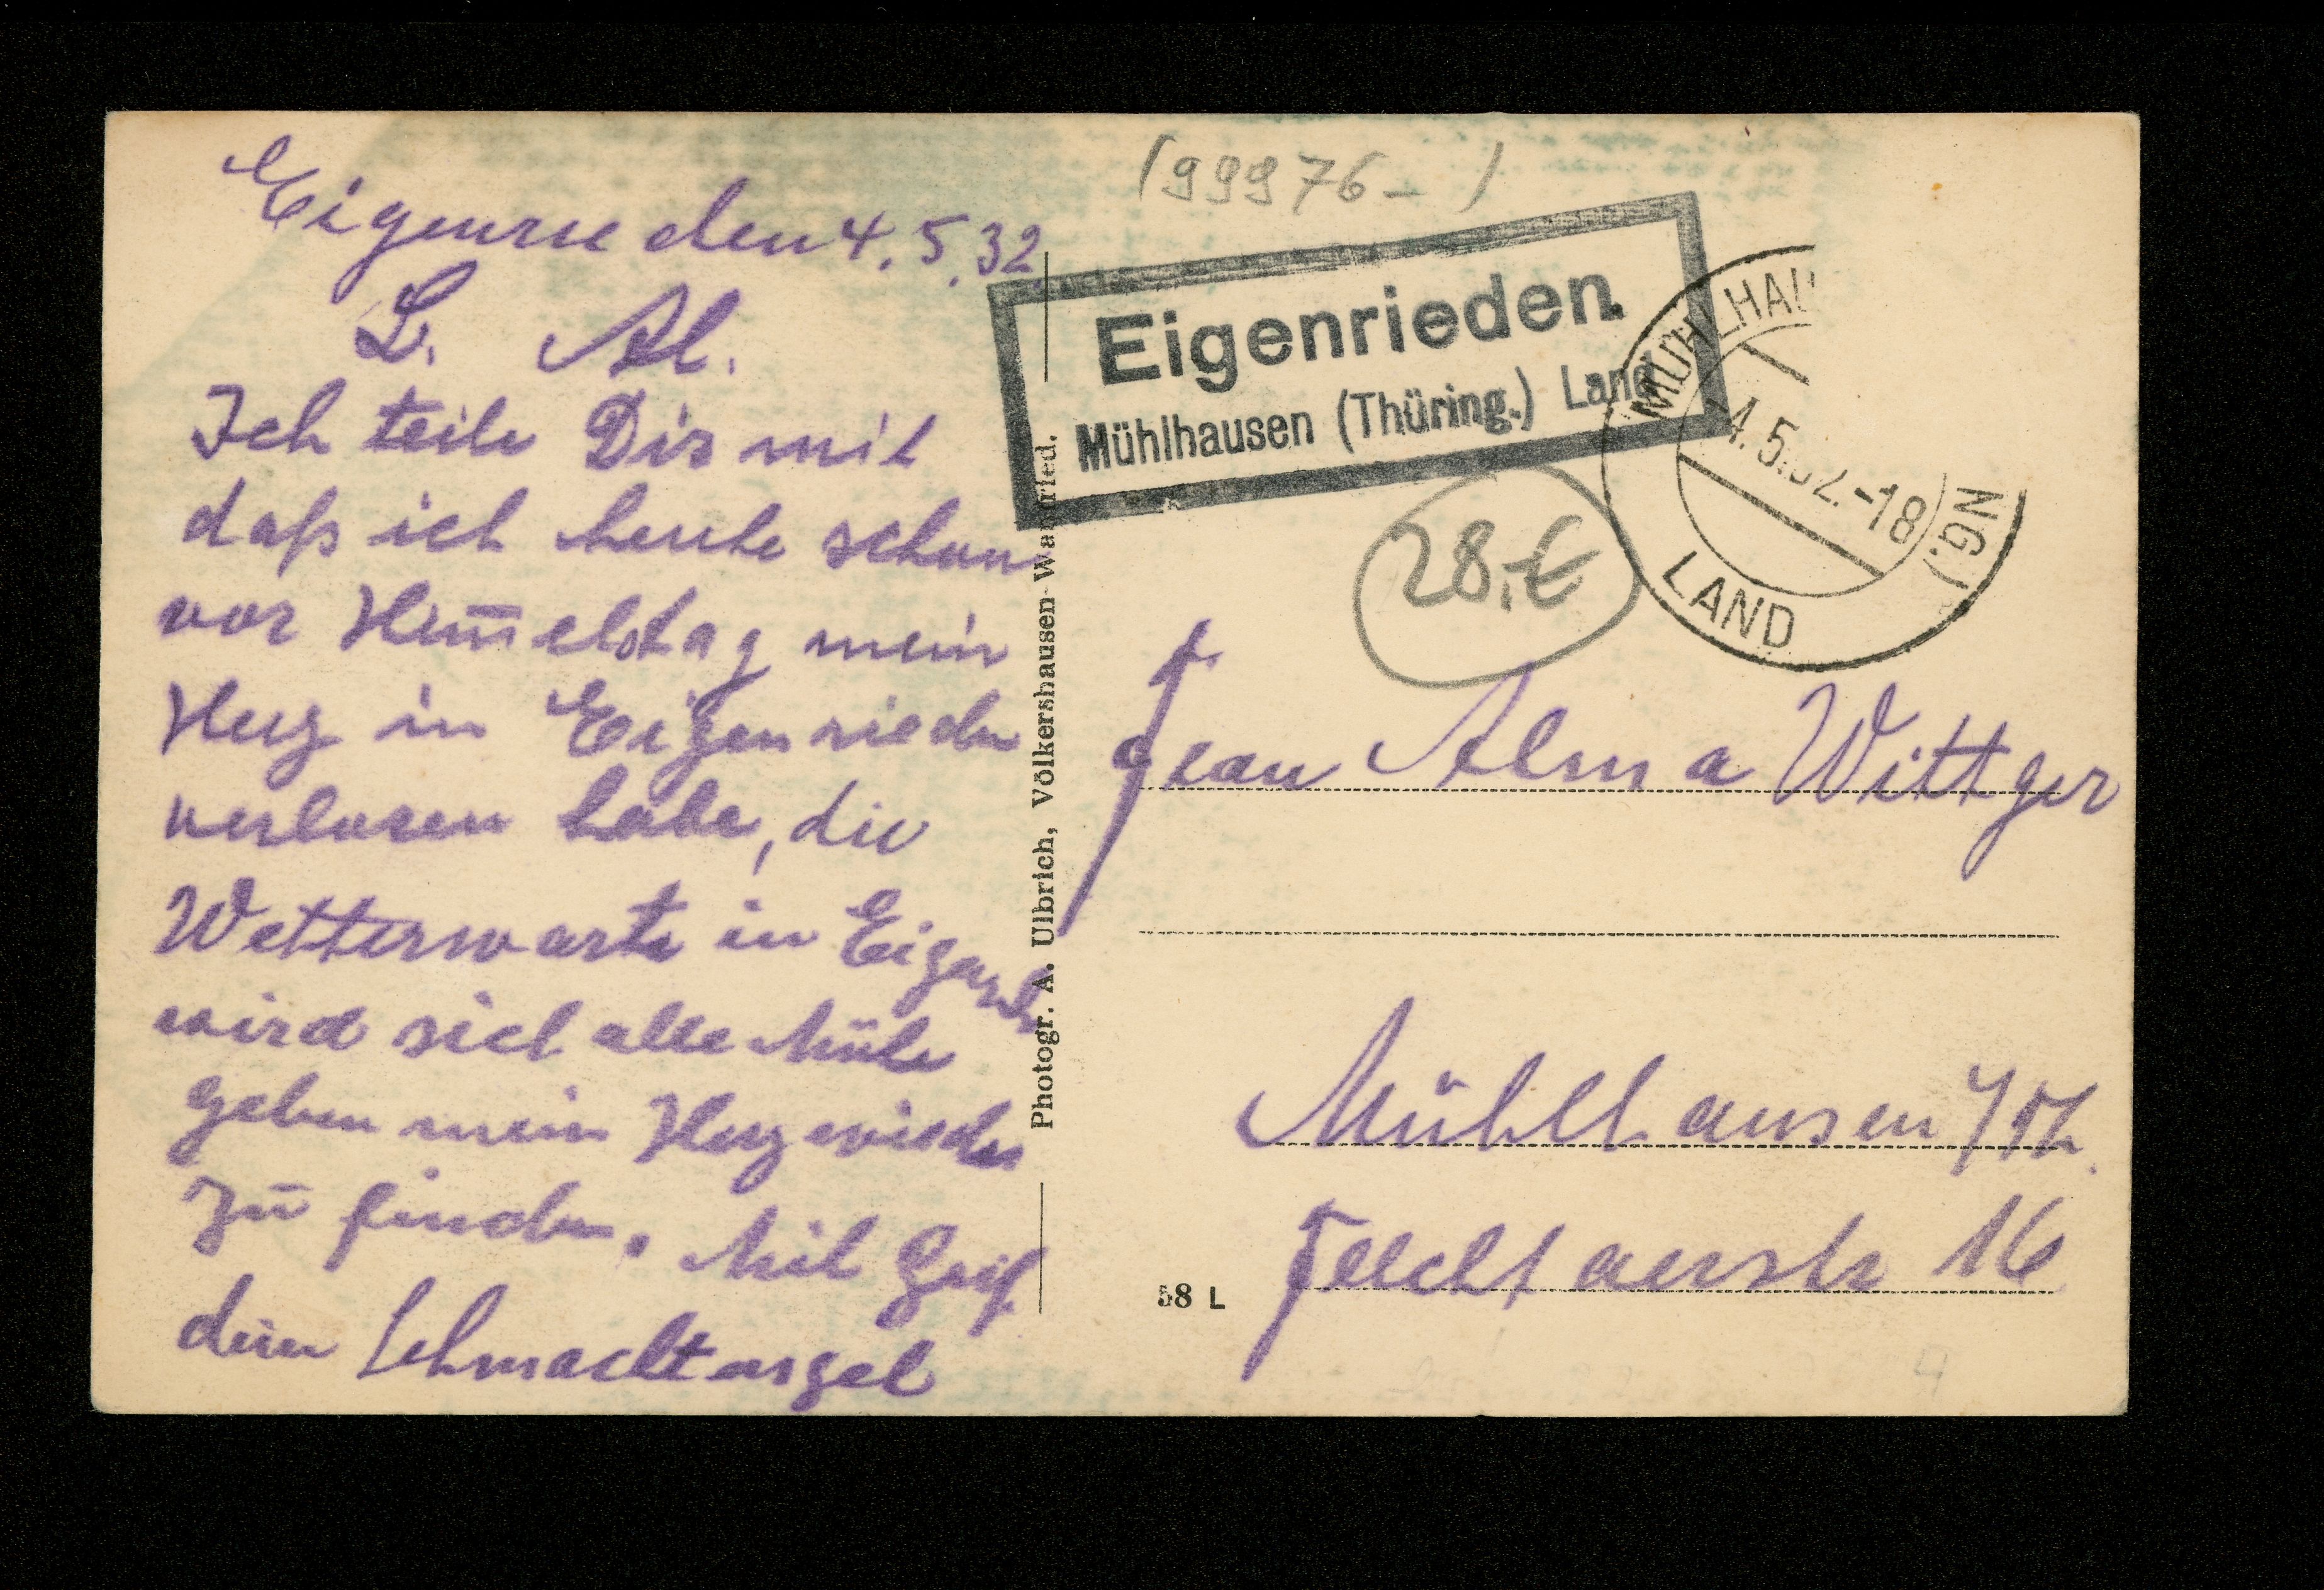 Eigenrieden 4.5.32
L. Al.
Ich teile Dir mit
daß ich heute schon
vor Him̅elstag mein
Herz in Eigenrieden
verloren habe, die
Wetterwarte in
wird sich alle Mühe
geben mein Herz wieder
zu finden. Mit Gruß
dein Schmachtorgel
Photogr. A. Ulbrich, Völkershausen-Wanfried.
(99976- )
Eigenrieden.
Mühlhausen (Thüring.) Land
MÜHLHAU
4.5.32.-18
NG.)
LAND
28,-€
Frau Alma Wittger
Mühlhausen i/Th.
Felchtaerstr 16
58 L